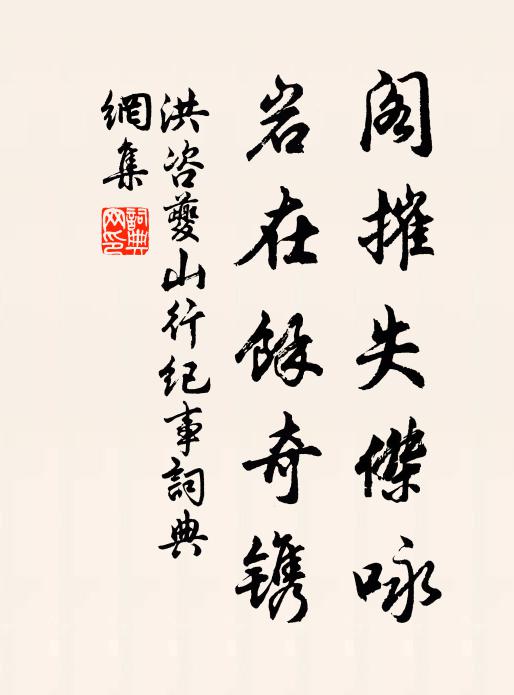 閣摧失傑咏
岩在餘奇鐫
洪咨夔山行纪事詞典
網集
詞典網印